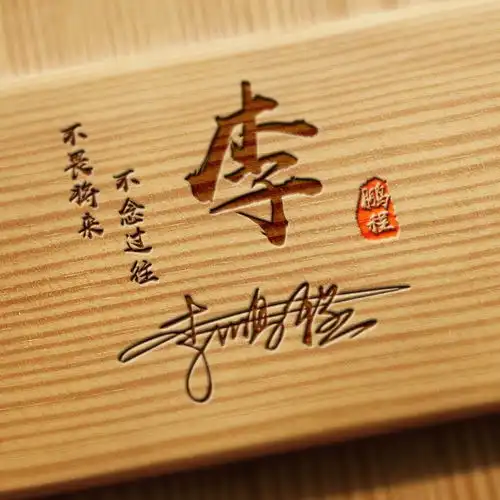 不畏将来
不念过往
李
鹏程
李鹏程